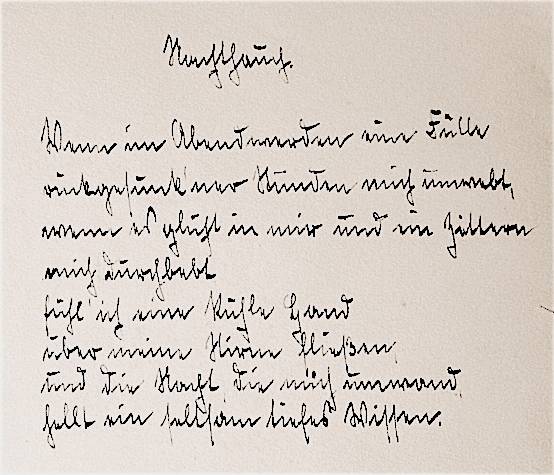 Nachthauch.
Wenn im Abendwerden eine Fülle
rückgesunk'ner Stunden mich umwebt,
wenn es glüht in mir und ein Zittern
mich durchbebt
fühl ich eine kühle Hand
über meine Stirne fließen,
und die Nacht, die mich umwand,
hellt ein seltsam tiefes Wissen.